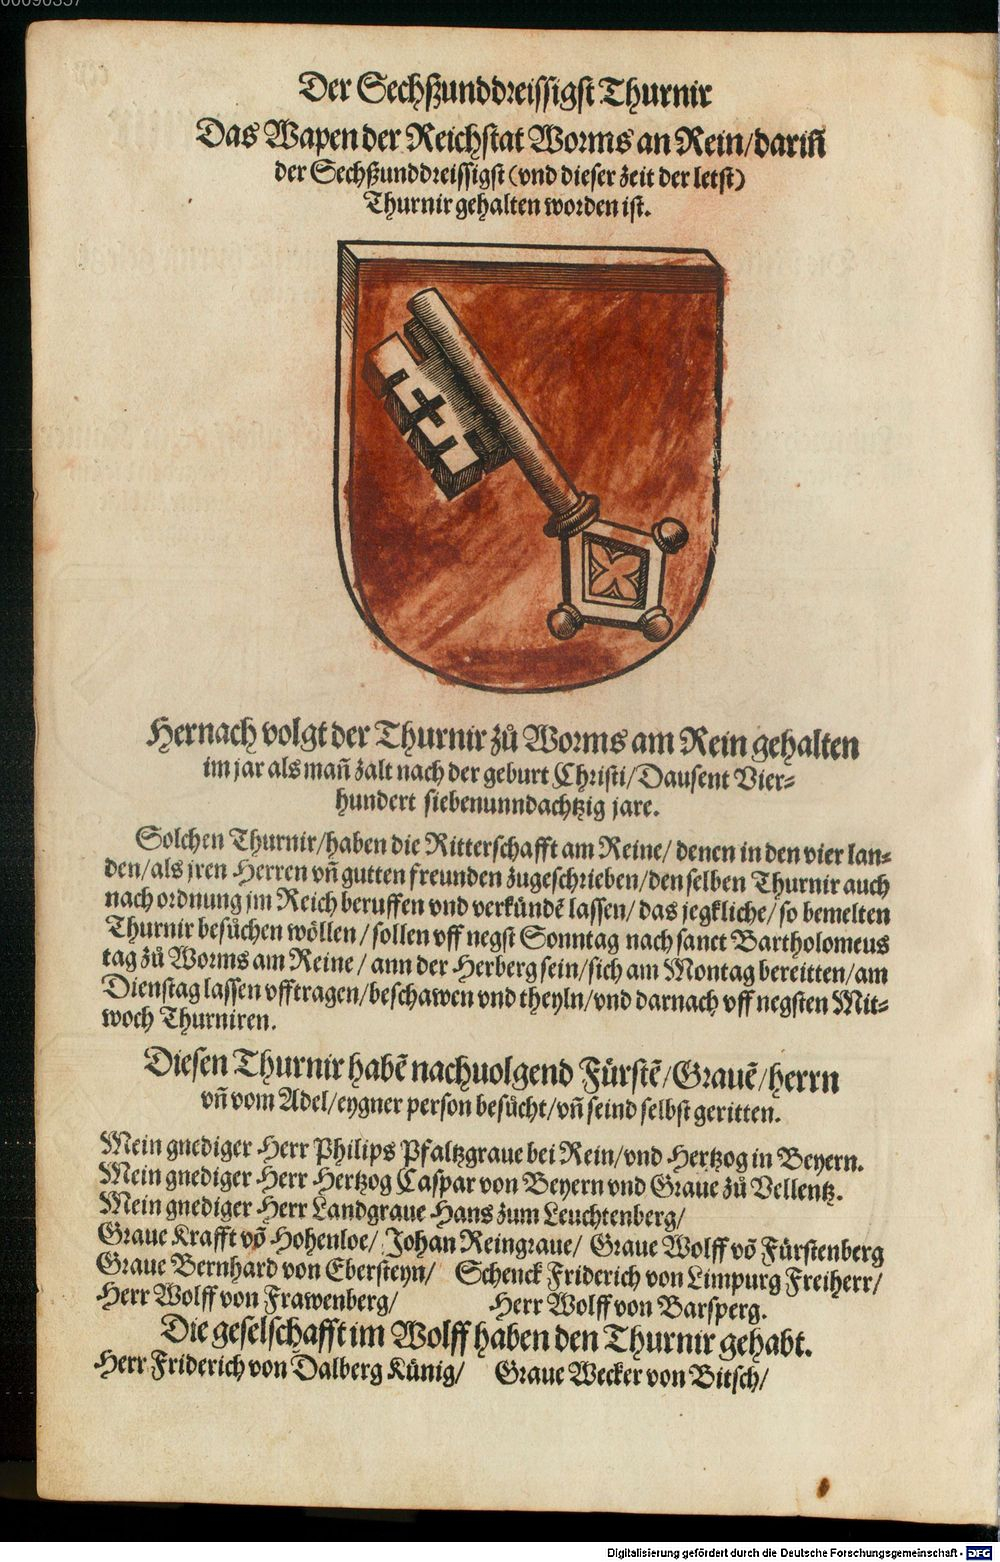 Der Sechßunddreissigst Thurnir
Das Wapen der Reichstat Worms an Rein/dariñ
der Sechßunddreissigst (vnd dieser zeit der letst)
Thurnir gehalten worden ist.
Hernach volgt der Thurnir zů Worms am Rein gehalten
im jar als mañ zalt nach der geburt Christi/Dausent Vier-
hundert siebenunndachtzig jare.
Solchen Thurnir/haben die Ritterschafft am Reine/ denen in den vier lan-
den/als jren Herren vñ gutten freunden zugeschrieben/den selben Thurnir auch
nach ordnung jm Reich beruffen vnd verkündẽ lassen/ das jegkliche/ so bemelten
Thurnir besůchen wöllen/sollen vff negst Sonntag nach sanct Bartholomeus
tag zů Worms am Reine/ ann der Herberg sein/sich am Montag bereitten/am
Dienstag lassen vfftragen/beschawen vnd theyln/vnd darnach vff negsten Mit-
woch Thurniren.
Diesen Thurnir habẽ nachuolgend Fürstẽ/Grauẽ/herrn
vñ vom Adel/eygner person besůcht/vñ seind selbst geritten.
Mein gnediger Herr Philips Pfaltzgraue bei Rein/vnd Hertzog in Beyern.
Mein gnediger Herr Hertzog Caspar von Beyern vnd Graue zů Vellentz.
Mein gnediger Herr Landgraue Hans zum Leuchtenberg/
Graue Krafft võ Hohenloe/ Johan Reingraue/ Graue Wolff võ Fürstenberg
Graue Bernhard von Ebersteyn/ Schenck Friderich von Limpurg Freiherr/
Herr Wolff von Frawenberg/ Herr Wolff von Barsperg.
Die geselschafft im Wolff haben den Thurnir gehabt.
Herr Friderich von Dalberg Künig/ Graue Wecker von Bitsch/
Digitalisierung gefördert durch die Deutsche Forschungsgemeinschaft - DFG